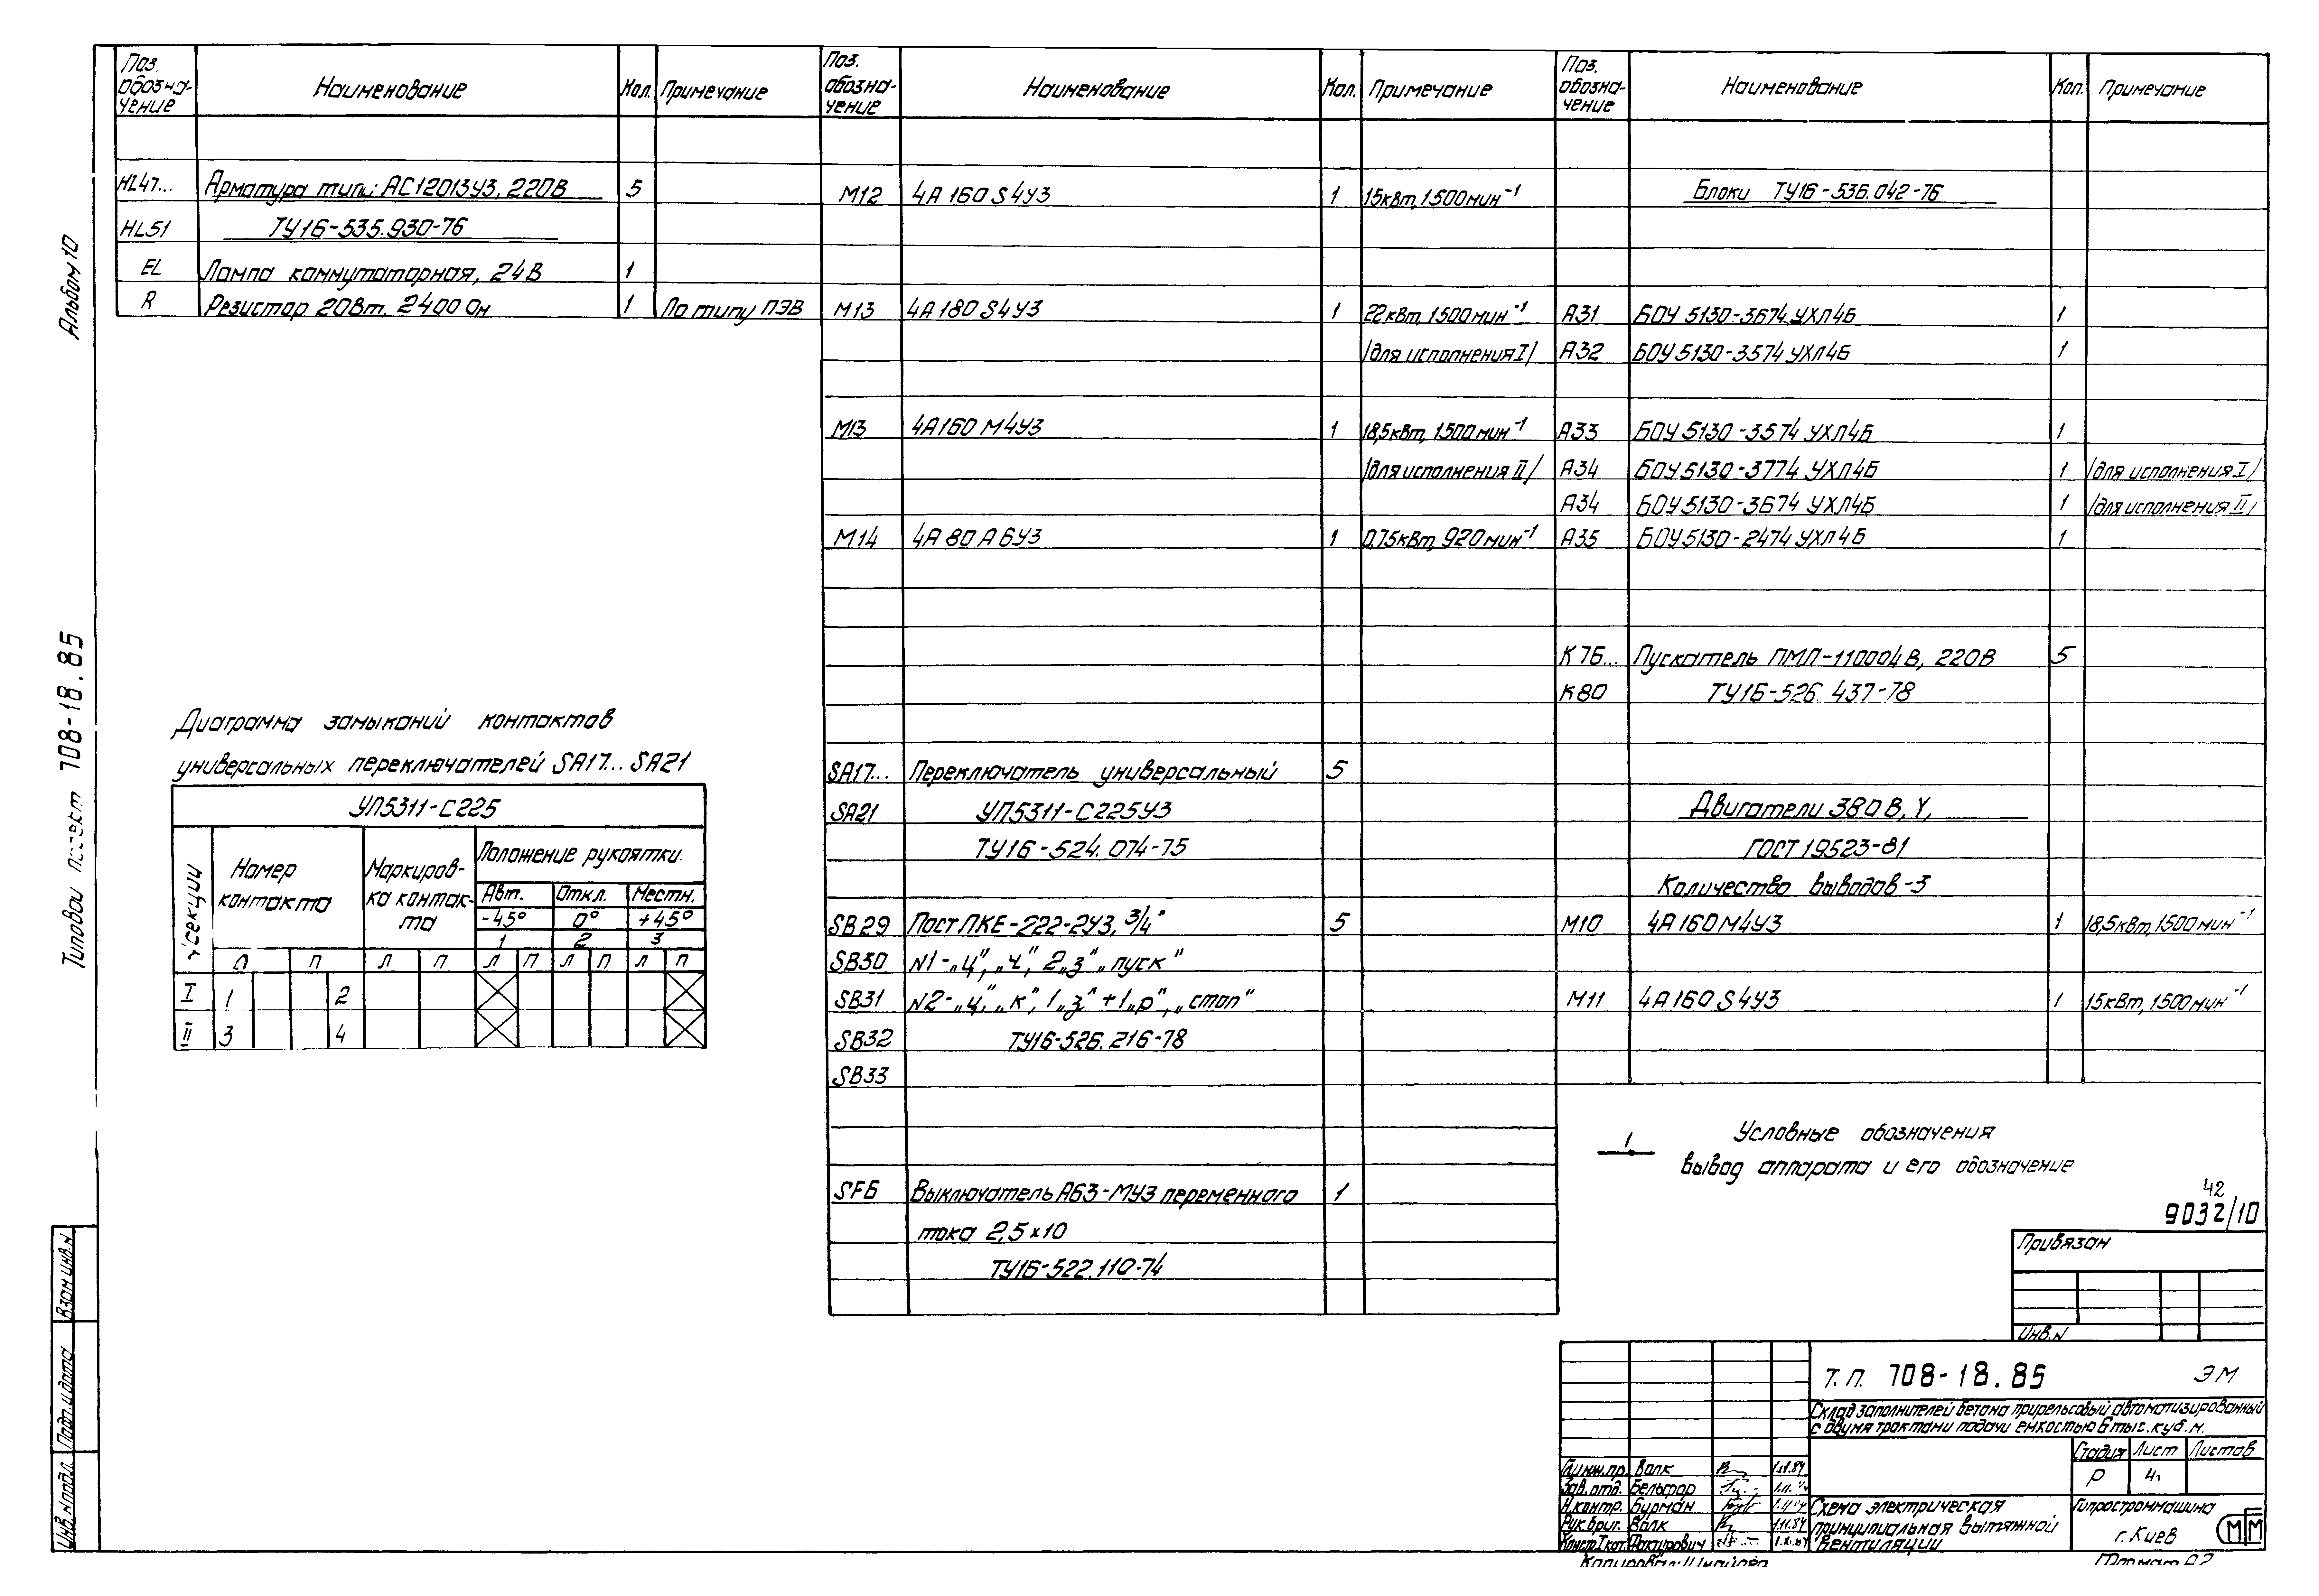 Поз. обозна-чение Наименование Кол. Примечание
HL47... Арматура типа АС12013У3, 220В 5
HL51 ТУ16-535.930-76
EL Лампа коммутаторная, 24В 1
R Резистор 20Вт, 2400 Ом 1 По типу ПЭВ
Диаграмма замыканий контактов
универсальных переключателей SA17... SA21
УП5311-С225
секции
Номер контакта
Маркиров-ка контак-та
Положение рукоятки.
Авт. Откл. Местн.
-45° 0° +45°
1 2 3
Л П Л П Л П Л П Л П
I 1 2
II 3 4
Поз. обозна-чение Наименование Кол. Примечание
М12 4А 160 S 4У3 1 15кВт, 1500мин⁻¹
М13 4А 180 S4У3 1 22кВт, 1500мин⁻¹
/для исполнения I/
М13 4А160 М4У3 1 18,5кВт, 1500мин⁻¹
/для исполнения II/
М14 4А 80 А 6У3 1 0,75кВт, 920мин⁻¹
SA17... Переключатель универсальный 5
SA21 УП5311-С225У3
ТУ16-524.074-75
SB29 Пост ПКЕ-222-2У3, 3/4" 5
SB30 N1-„ц", „ч", 2„з" „пуск"
SB31 N2-„ц", „к", 1„з" + 1„р", „стоп"
SB32 ТУ16-526.216-78
SB33
SF6 Выключатель А63-МУ3 переменного 1
тока 2,5х10
ТУ16-522.110-74
Поз. обозна-чение Наименование Кол. Примечание
Блоки ТУ16-536.042-76
А31 БОУ 5130-3674 УХЛ4Б 1
А32 БОУ 5130-3574 УХЛ4Б 1
А33 БОУ 5130-3574 УХЛ4Б 1
А34 БОУ 5130-3774 УХЛ4Б 1 /для исполнения I/
А34 БОУ 5130-3674 УХЛ4Б 1 /для исполнения II/
А35 БОУ 5130-2474 УХЛ4Б 1
К76... Пускатель ПМЛ-110004В, 220В 5
К80 ТУ16-526.437-78
Двигатели 380 В, Y,
ГОСТ 19523-81
Количество выводов-3
М10 4А 160М4У3 1 18,5кВт, 1500мин⁻¹
М11 4А 160 S 4У3 1 15кВт, 1500мин⁻¹
Условные обозначения
1 вывод аппарата и его обозначение
42
9032/10
Привязан
Инв.N
Т.П. 708-18.85 ЭМ
Склад заполнителей бетона прирельсовый автоматизированный
с двумя трактами подачи емкостью 6 тыс. куб. м.
Стадия Лист Листов
Р 4
Гл.инж.пр. Волк 1.11.84
Зав.отд. Бельфор
Н.контр. Бурман
Рук.бриг. Волк 1.11.84
Констр.I кат.
Схема электрическая
принципиальная вытяжной
вентиляции
Гипростроммашина
г. Киев
Альбом 10
Типовой проект 708-18.85
Взам инв.N
Подп. и дата
Инв.N подл.